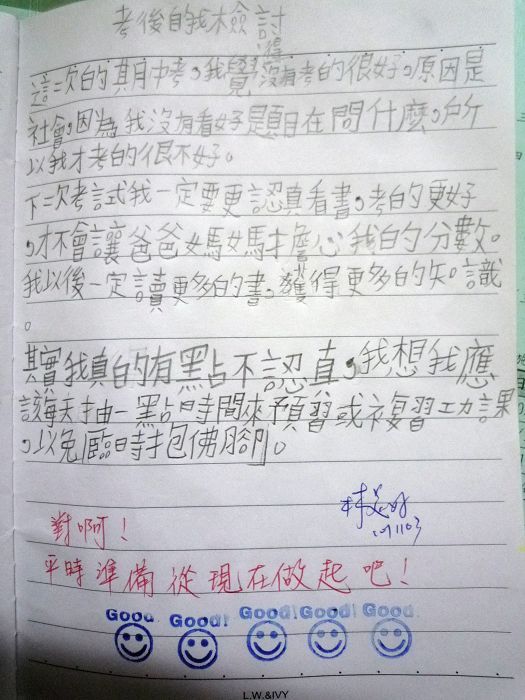 考後自我檢討
這次的期中考，我覺得沒有考的很好。原因是
社會，因為我沒有看好題目在問什麼。所
以我才考的很不好。
下次考試式我一定要更認真看書，考的更好
，才不會讓爸爸媽媽擔心我的分數。
我以後一定讀更多的書，獲得更多的知識
。
其實我真的有點不認真，我想我應
該每天抽一點時間來預習或複習功課
，以免臨時抱佛腳。
對啊！
平時準備從現在做起吧！
Good Good! Good! Good! Good
L.W.&IVY